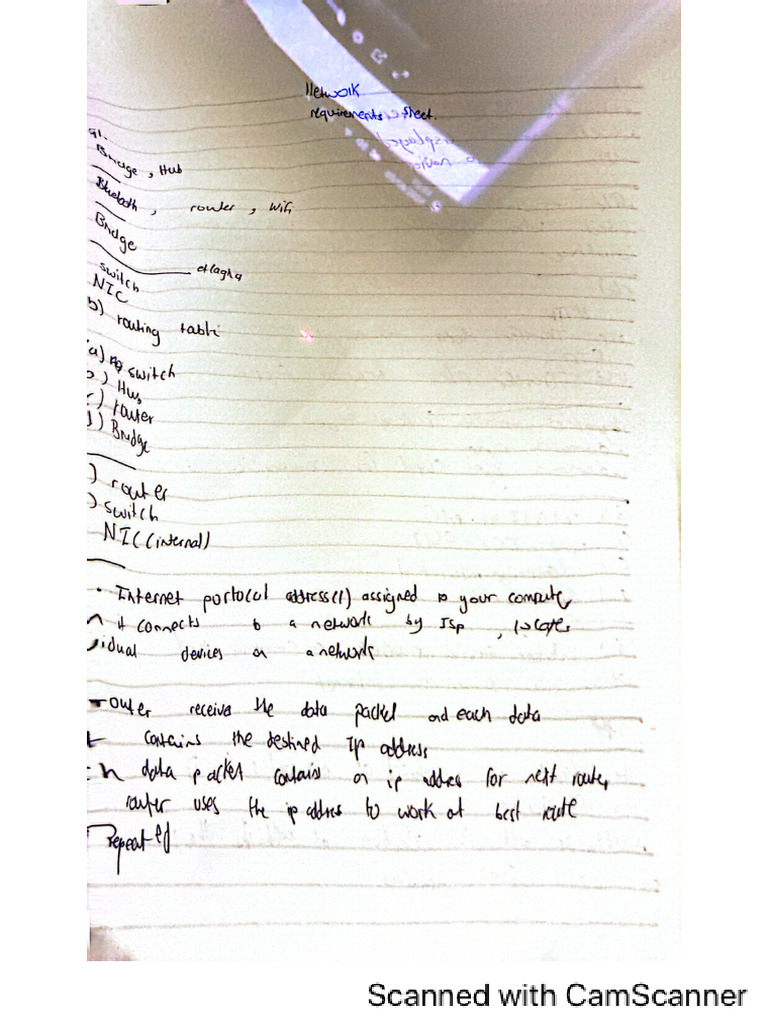 Network
requirements sheet.
q1.
Bridge, Hub
Bluetooth, router, Wifi
Bridge
switch
NIC
b) routing table
a) switch
b) Hub
c) router
d) Bridge
) router
) switch
NIC (internal)
• Internet portocal address(1) assigned to your computer,
n it connects to a network by ISP, locates
vidual devices on a network.
router receive the data packet and each data
t contains the destined Ip address
ch data packet contains an ip addres for next router,
router uses the ip address to work ot best route
Repeated
Scanned with CamScanner